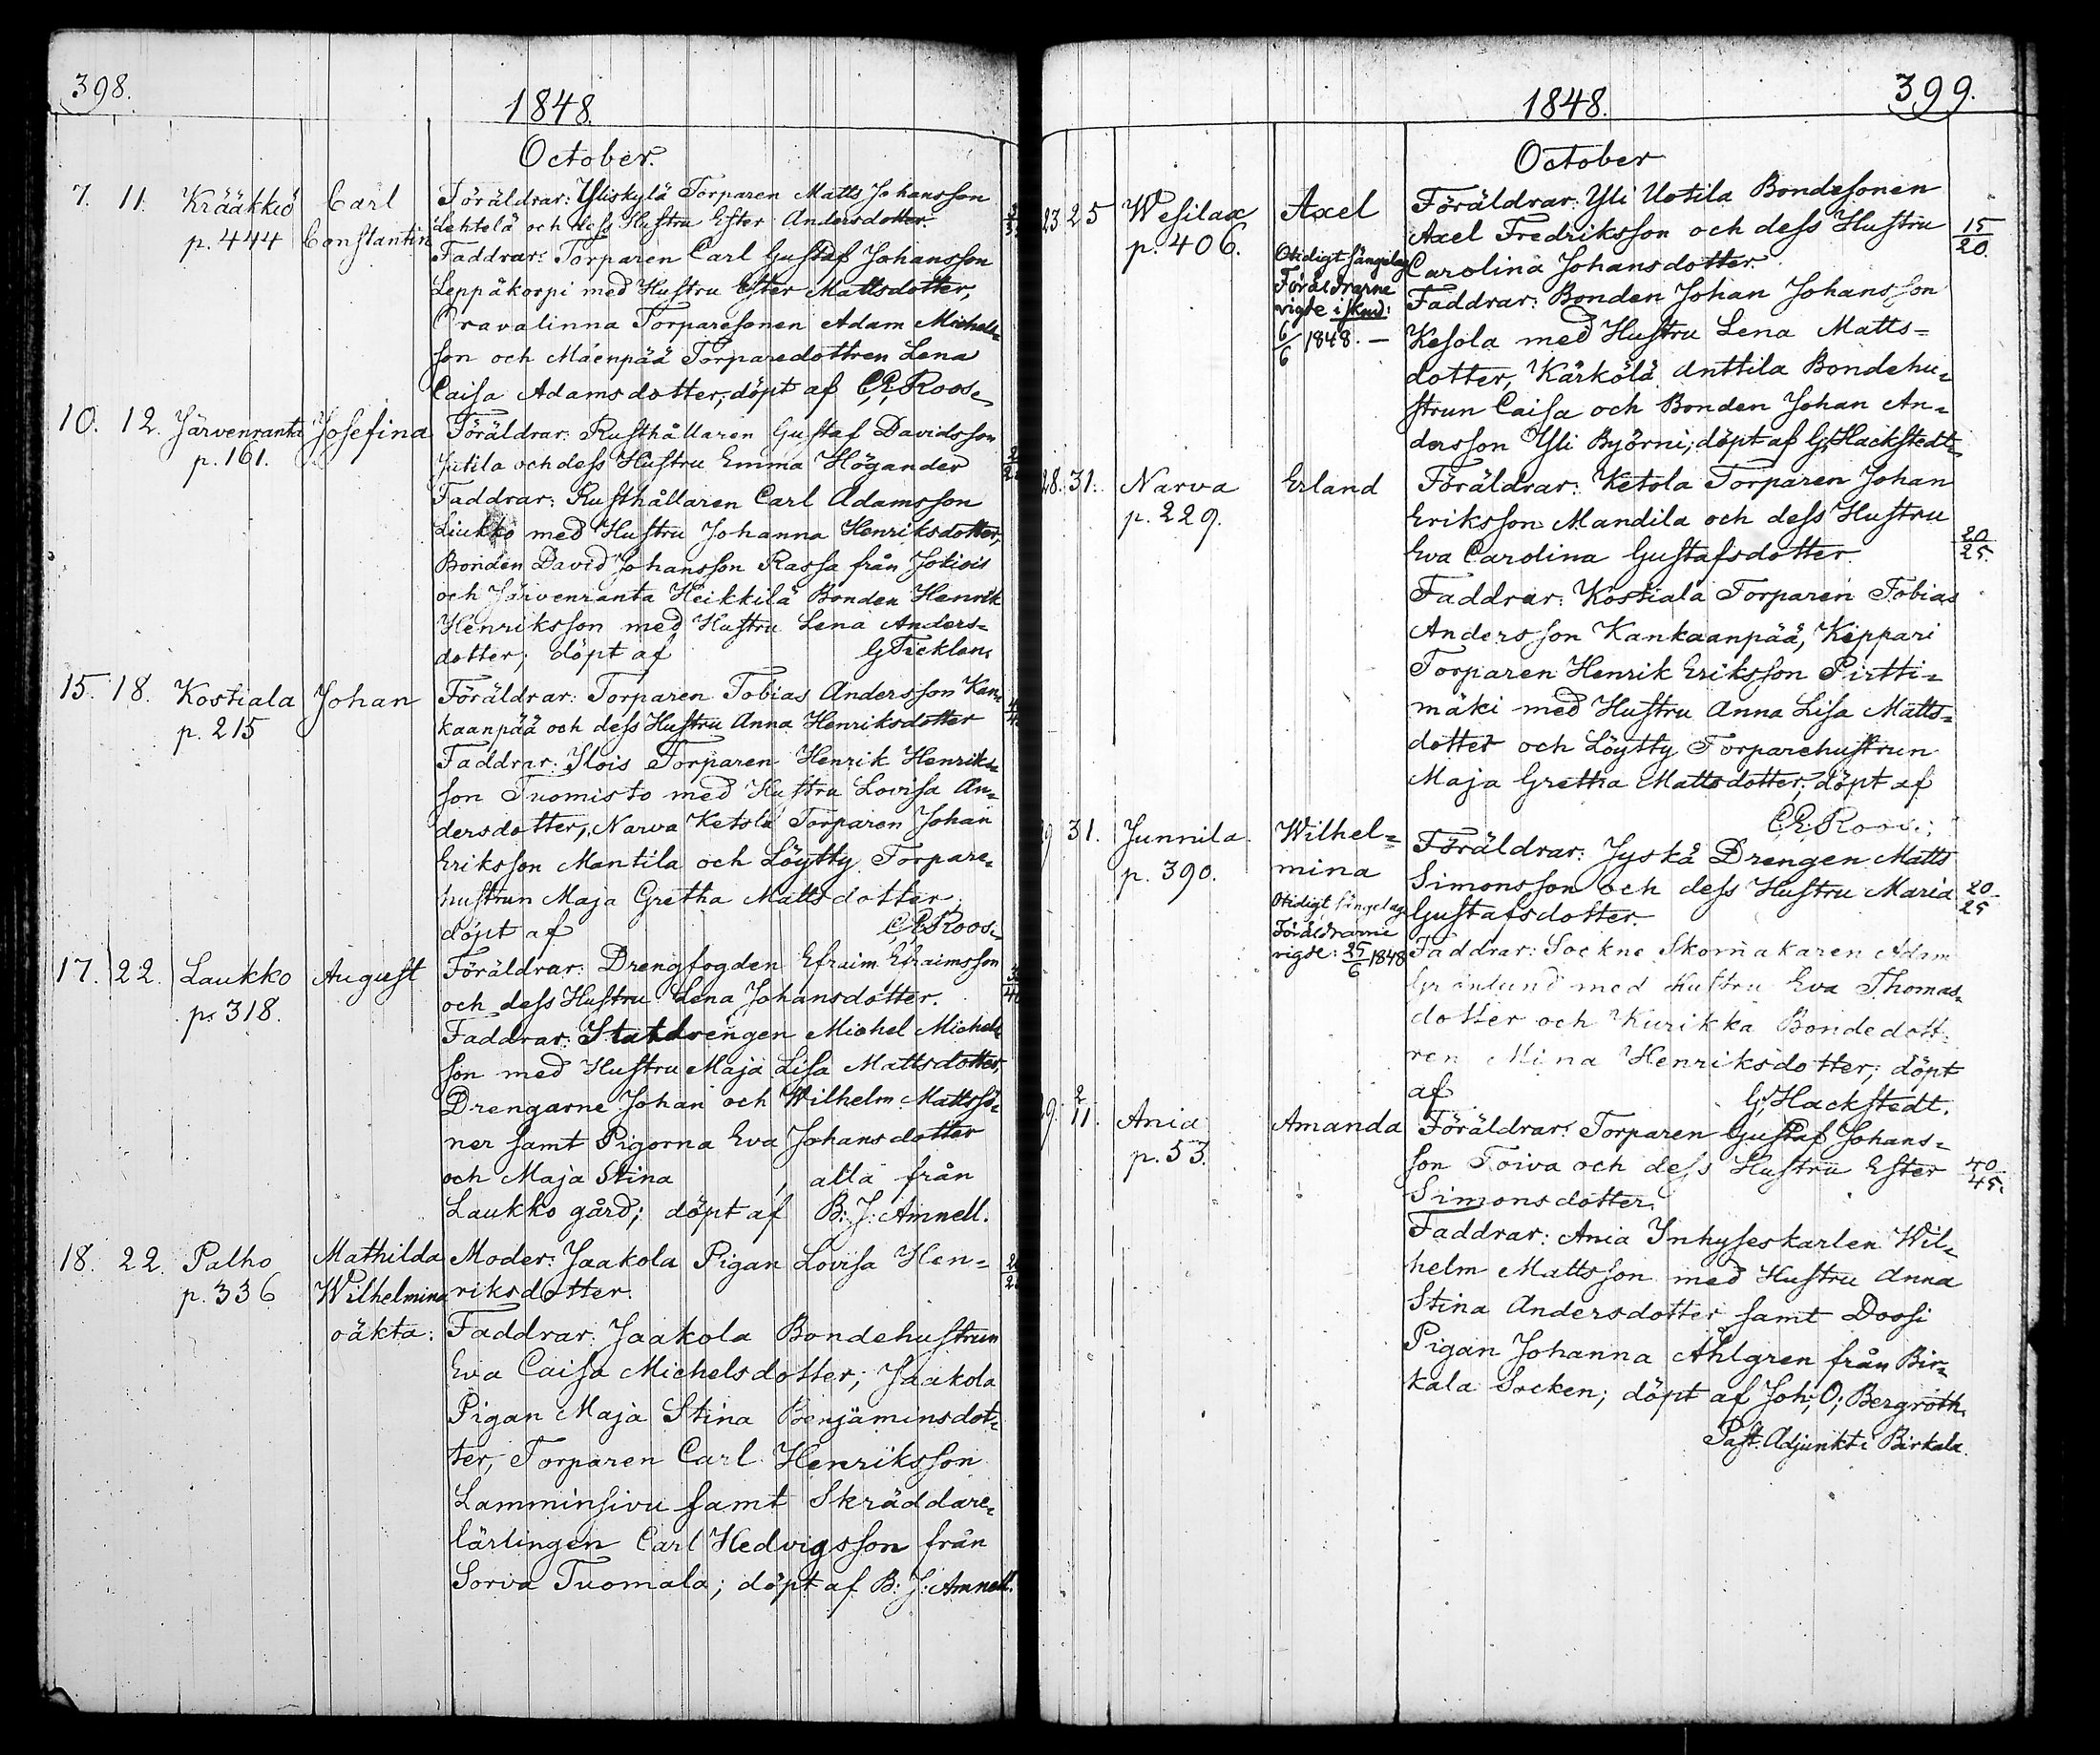 398.
1848.
October.
7. 11. Krääkkiö Carl Föräldrar: Yliskylä Torparen Matts Johansson
p. 444 Constantin Lehtelä och dess Hustru Ester Andersdotter.
Faddrar: Torparen Carl Gustaf Johansson
Leppäkorpi med Hustru Ester Mattsdotter,
Oravalinna Torparesonen Adam Michels-
son och Mäenpää Torparedottren Lena
Caisa Adamsdotter; döpt af C. E. Roos.
10. 12. Järvenranta Josefina Föräldrar: Rusthållaren Gustaf Davidsson
p. 161. Jutila och dess Hustru Emma Högander
Faddrar: Rusthållaren Carl Adamsson
Liukko med Hustru Johanna Henriksdotter,
Bonden David Johansson Rassa från Jokiois
och Järvenranta Heikkilä Bonden Henrik
Henriksson med Hustru Lena Anders-
dotter; döpt af G Ticklen.
15. 18. Kostiala Johan Föräldrar: Torparen Tobias Andersson Kan-
p. 215 kaanpää och dess Hustru Anna Henriksdotter
Faddrar: Ylois Torparen Henrik Henriks-
son Tuomisto med Hustru Lovisa An-
dersdotter, Narva Ketola Torparen Johan
Eriksson Mantila och Löytty Torpare-
hustrun Maja Gretha Mattsdotter;
döpt af C. E. Roos.
17. 22. Laukko August Föräldrar: Drengfogden Efraim Efraimsson
p. 318. och dess Hustru Lena Johansdotter.
Faddrar: Statdrengen Michel Michels-
son med Hustru Maja Lisa Mattsdotter,
Drengarne Johan och Wilhelm Mattssö-
ner samt Pigorna Eva Johansdotter
och Maja Stina , alla från
Laukko gård; döpt af B: J: Amnell.
18. 22. Palho Mathilda Moder: Jaakola Pigan Lovisa Hen-
p. 336 Wilhelmina riksdotter.
oäkta: Faddrar: Jaakola Bondehustrun
Eva Caisa Michelsdotter; Jaakola
Pigan Maja Stina Benjaminsdot-
ter, Torparen Carl Henriksson
Lamminsivu samt Skräddare-
lärlingen Carl Hedvigsson från
Sorva Tuomala; döpt af B: J: Amnell.
399.
1848.
October
23 25 Wesilax Axel Föräldrar: Yli Uotila Bondesonen
p. 406. Axel Fredriksson och dess Hustru 15/20.
Otidigt sängelag Carolina Johansdotter.
Föräldrarne Faddrar: Bonden Johan Johansson
vigde i Kesola med Hustru Lena Matts-
6/6 1848. — dotter, Kärkölä Anttila Bondehu-
strun Caisa och Bonden Johan An-
dersson Yli Byörni; döpt af G; Hackstedt.
28. 31. Narva Erland Föräldrar: Ketola Torparen Johan
p. 229. Eriksson Mandila och dess Hustru
Eva Carolina Gustafsdotter. 20/25.
Faddrar: Kostiala Torparen Tobias
Andersson Kankaanpää, Kippari
Torparen Henrik Eriksson Pirtti-
mäki med Hustru Anna Lisa Matts-
dotter och Löytty Torparehustrun
Maja Gretha Mattsdotter; döpt af
C. E. Roos.
29 31. Junnila Wilhel- Föräldrar: Jyskä Drengen Matts
p. 390. mina Simonsson och dess Hustru Maria 20/25
Otidigt sängelag Gustafsdotter.
Föräldrarne
vigde: 25/6 1848 Faddrar: Sockne Skomakaren Adam
Grönlund med Hustru Eva Thomas-
dotter och Kurikka Bondedott-
ren Mina Henriksdotter; döpt
af G; Hackstedt.
29. 2/11. Ania Amanda Föräldrar: Torparen Gustaf Johans-
p. 53. son Toiva och dess Hustru Ester 40/45.
Simonsdotter.
Faddrar: Ania Inhyseskarlen Wil-
helm Mattsson med Hustru Anna
Stina Andersdotter samt Doosi
Pigan Johanna Ahlgren från Bir-
kala Socken; döpt af Joh; O; Bergroth.
Past. Adjunkt i Birkala.